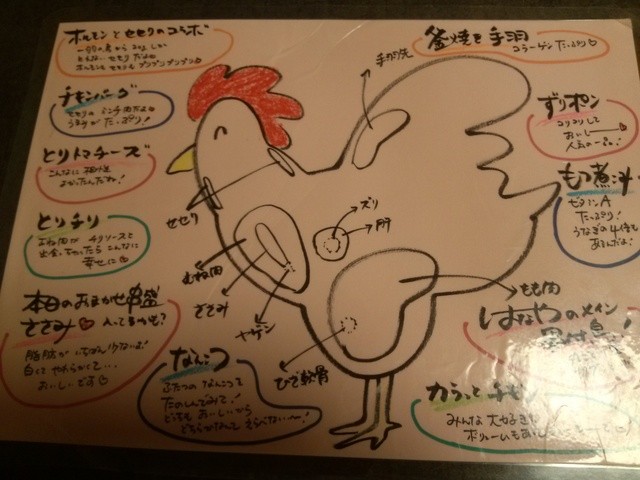 ホルモンとセセリのコラボ
チキンバーグ
うまみが たっぷり!
とりトマチーズ
こんなに相性
よかったんだね!
とりチリ
むね肉が チリソースと
出会っちゃったら こんなに
幸せに
本日のおまかせ串盛
ささみ 入ってるかも?
脂肪がいちばん少ないよ!
白に やわらかくて…
おいしいどす
なんこつ
ふたつの なんこつって
たのしんでみて!
どっちも おいしいから
どちらかなんて えらべない〜!
セセリ
むね肉
ささみ
ヤゲン
ひざ軟骨
手羽先
ズリ
肝
もも肉
釜焼き手羽
コラーゲン たっぷり
ずりポン
コリコリして
おいしー
人気の一品!
もつ煮
ビタミンA
たっぷり!
うなぎの4倍も
あるんだよ!
はなやのメイン
カラッとチキン
みんな 大好き
ボリュームも